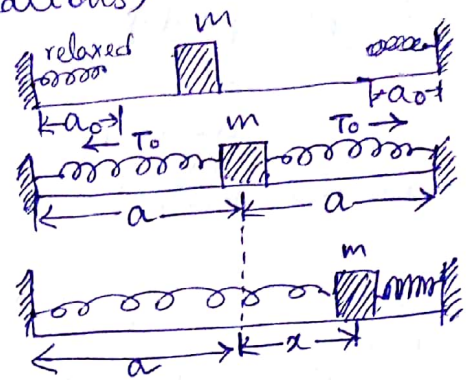 relaxed
m
a₀
a₀
T₀
m
T₀
a
a
m
a
x